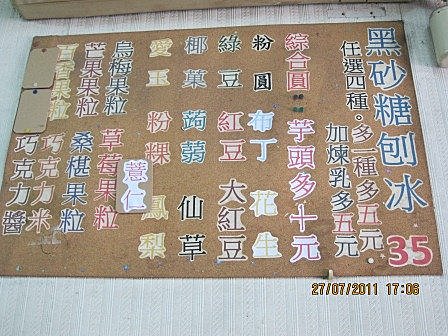 黑砂糖刨冰 35
任選四種。多一種多五元
加煉乳多五元
綜合圓 芋頭多十元
粉圓 布丁 花生
綠豆 紅豆 大紅豆
椰菓 蒟蒻 仙草
愛玉 粉粿 鳳梨
薏仁
烏梅果粒 草莓果粒
芒果果粒 桑椹果粒
百香果粒 巧克力米
巧克力醬
27/07/2011 17:06